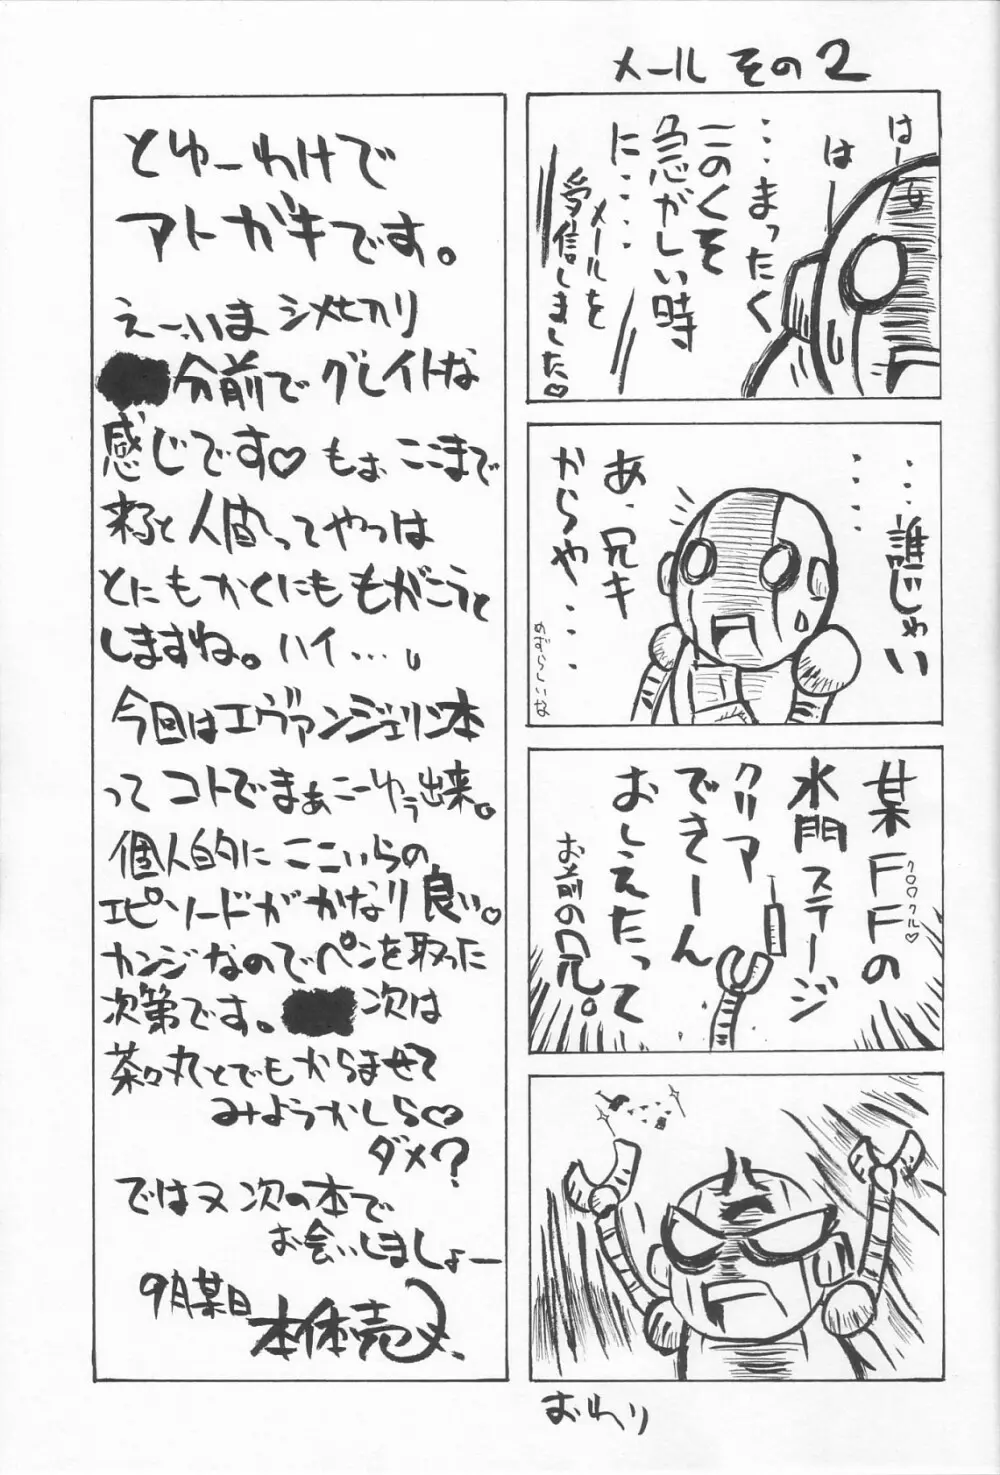 メール その2
はーっ
は
…まったく
このくそ
急がしい時
に……
メールを
受信しました♡
……誰じゃい
あ、兄キ
からや…
めずらしいな
某FFの
クロ○クル♡
水門ステージ
クリア
できーん
おしえたって
お前の兄。
おわり
とゆーわけで
アトガキです。
えーいま シメセカリ
分前で グレイトな
感じです♡ もぉ ここまで
来ると 人間ってやつは
とにもかくにも もがこうと
しますね。ハイ…。
今回はエヴァンジェリン本
って コトでまぁこーゆう出来。
個人的に ここいらの
エピソードが かなり 良い♡
カンジなのでペンを取った
次第です。 次は
茶々丸とでもからませて
みようかしら♡
ダメ?
ではヌ 次の本で
お会いしましょー
9月某日
本体売ヌ